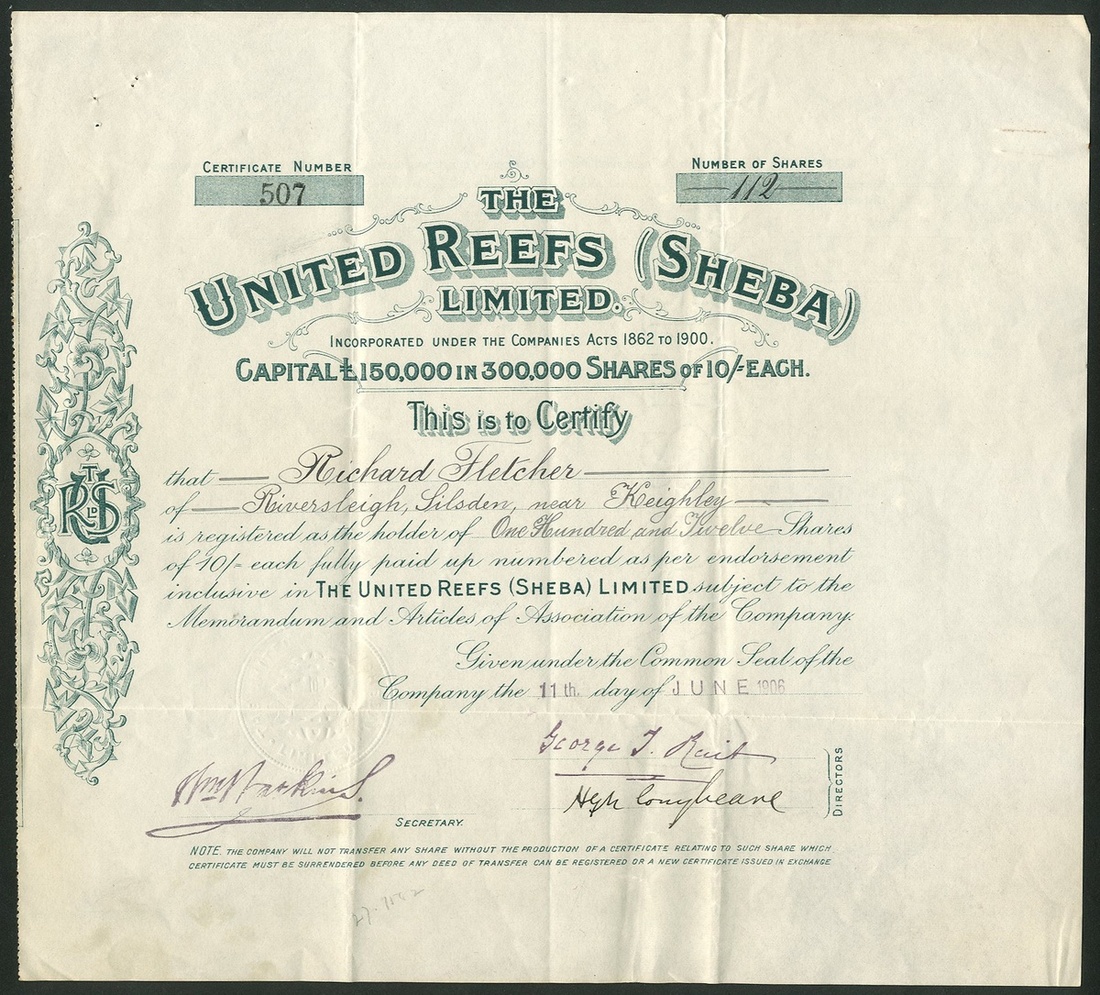 CERTIFICATE NUMBER
507
NUMBER OF SHARES
112
THE
UNITED REEFS (SHEBA)
LIMITED.
INCORPORATED UNDER THE COMPANIES ACTS 1862 TO 1900.
CAPITAL £150,000 IN 300,000 SHARES OF 10/- EACH.
This is to Certify
that Richard Fletcher
of Riversleigh, Silsden, near Keighley
is registered as the holder of One Hundred and Twelve Shares
of 10/- each fully paid up numbered as per endorsement
inclusive in THE UNITED REEFS (SHEBA) LIMITED subject to the
Memorandum and Articles of Association of the Company.
Given under the Common Seal of the
Company the 11th. day of JUNE 1906
George
Conybeare
DIRECTORS
SECRETARY.
NOTE. THE COMPANY WILL NOT TRANSFER ANY SHARE WITHOUT THE PRODUCTION OF A CERTIFICATE RELATING TO SUCH SHARE WHICH
CERTIFICATE MUST BE SURRENDERED BEFORE ANY DEED OF TRANSFER CAN BE REGISTERED OR A NEW CERTIFICATE ISSUED IN EXCHANGE